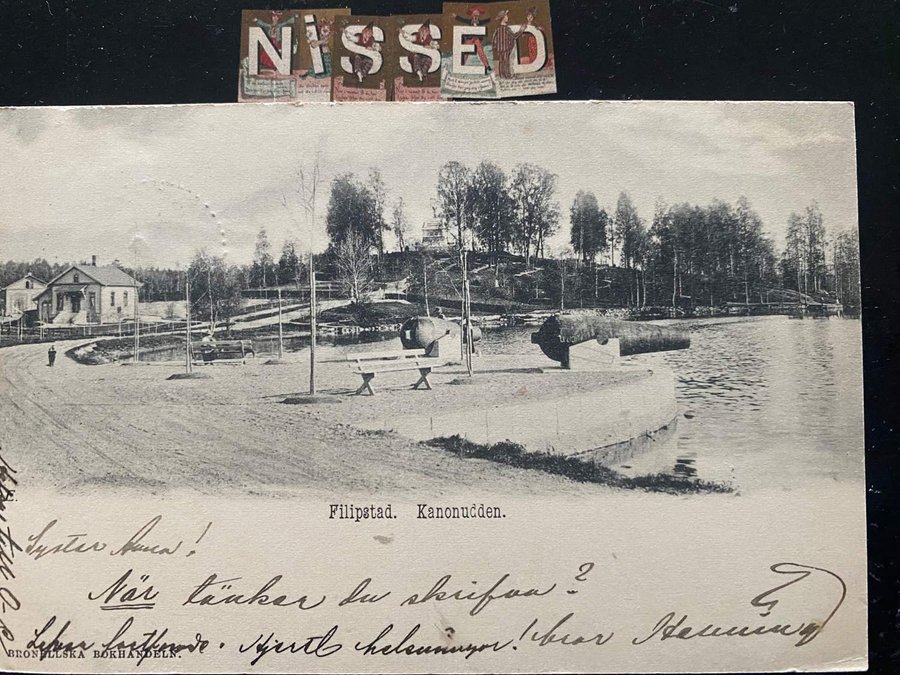 NISSED
Filipstad. Kanonudden.
Syster Anna!
När tänker du skrifva?
fortfarande. Hjertl helsningar! bror Henning
BRONELLSKA BOKHANDELN.